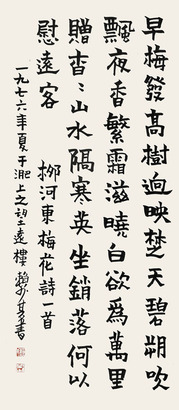 早梅發高樹迥映楚天碧朔吹
飄夜香繁霜滋曉白欲爲萬里
贈杳〻山水隔寒英坐銷落何以
慰遠客
柳河東梅花詩一首
一九七六年夏于淝上之望遠樓